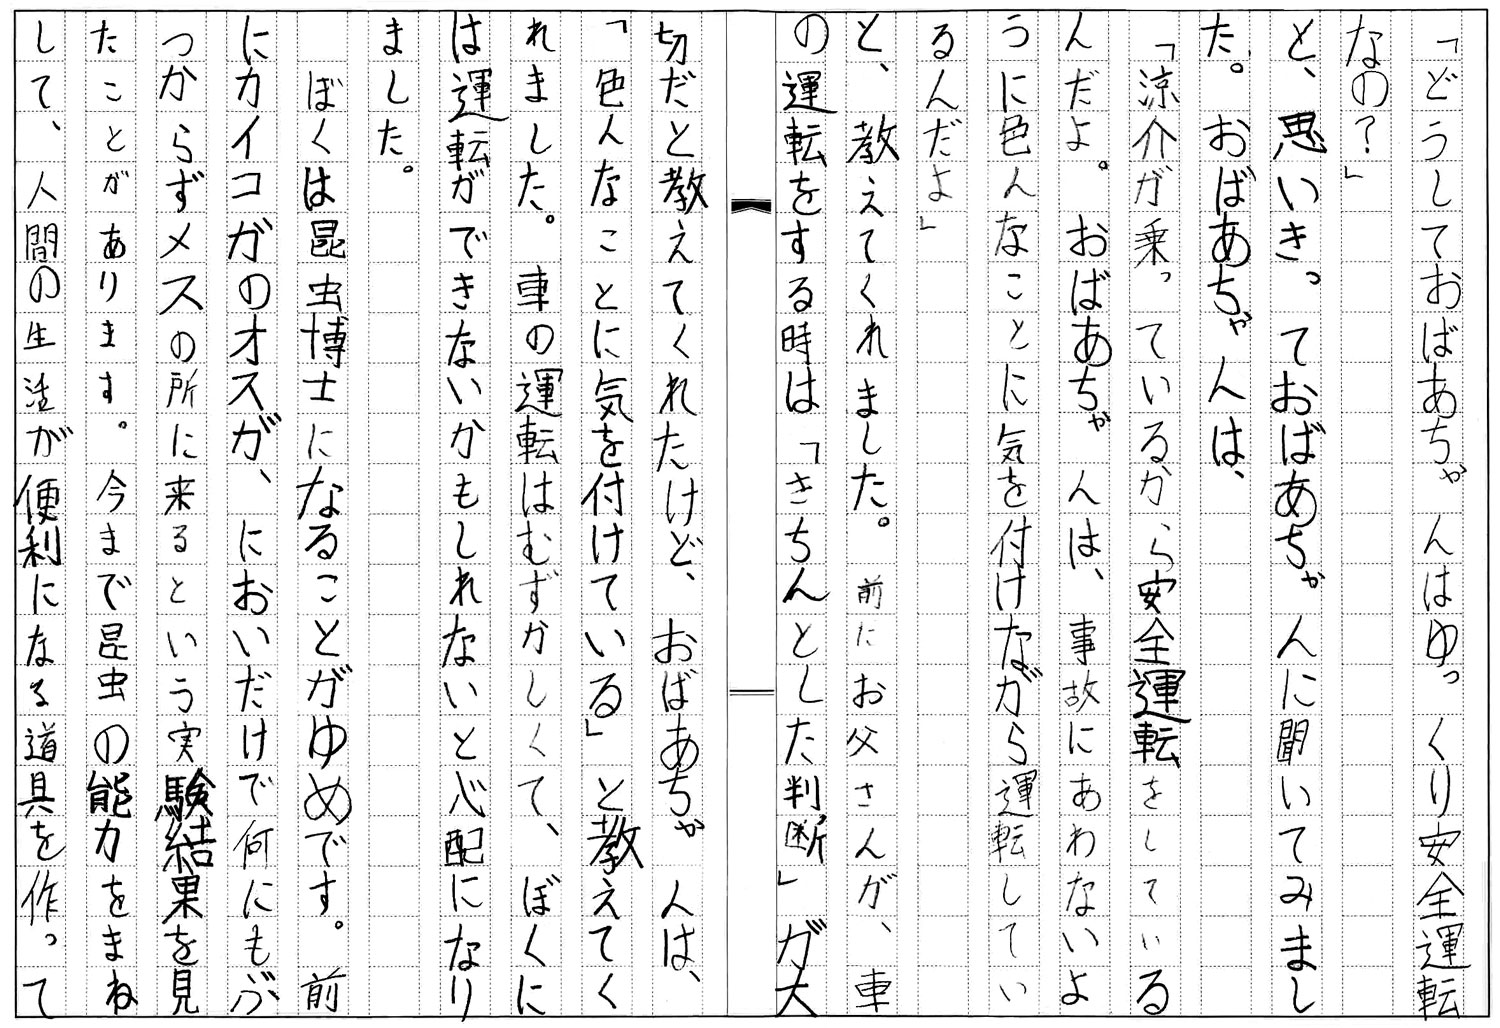 「どうしておばあちゃんはゆっくり安全運転
なの？」
と、思いきっておばあちゃんに聞いてみまし
た。おばあちゃんは、
「涼介が乗っているから安全運転をしている
んだよ。おばあちゃんは、事故にあわないよ
うに色んなことに気を付けながら運転してい
るんだよ」
と、教えてくれました。前にお父さんが、車
の運転をする時は「きちんとした判断」が大
切だと教えてくれたけど、おばあちゃんは、
「色んなことに気を付けている」と教えてく
れました。車の運転はむずかしくて、ぼくに
は運転ができないかもしれないと心配になり
ました。
ぼくは昆虫博士になることがゆめです。前
にカイコガのオスが、においだけで何にもぶ
つからずメスの所に来るという実験結果を見
たことがあります。今まで昆虫の能力をまね
して、人間の生活が便利になる道具を作って